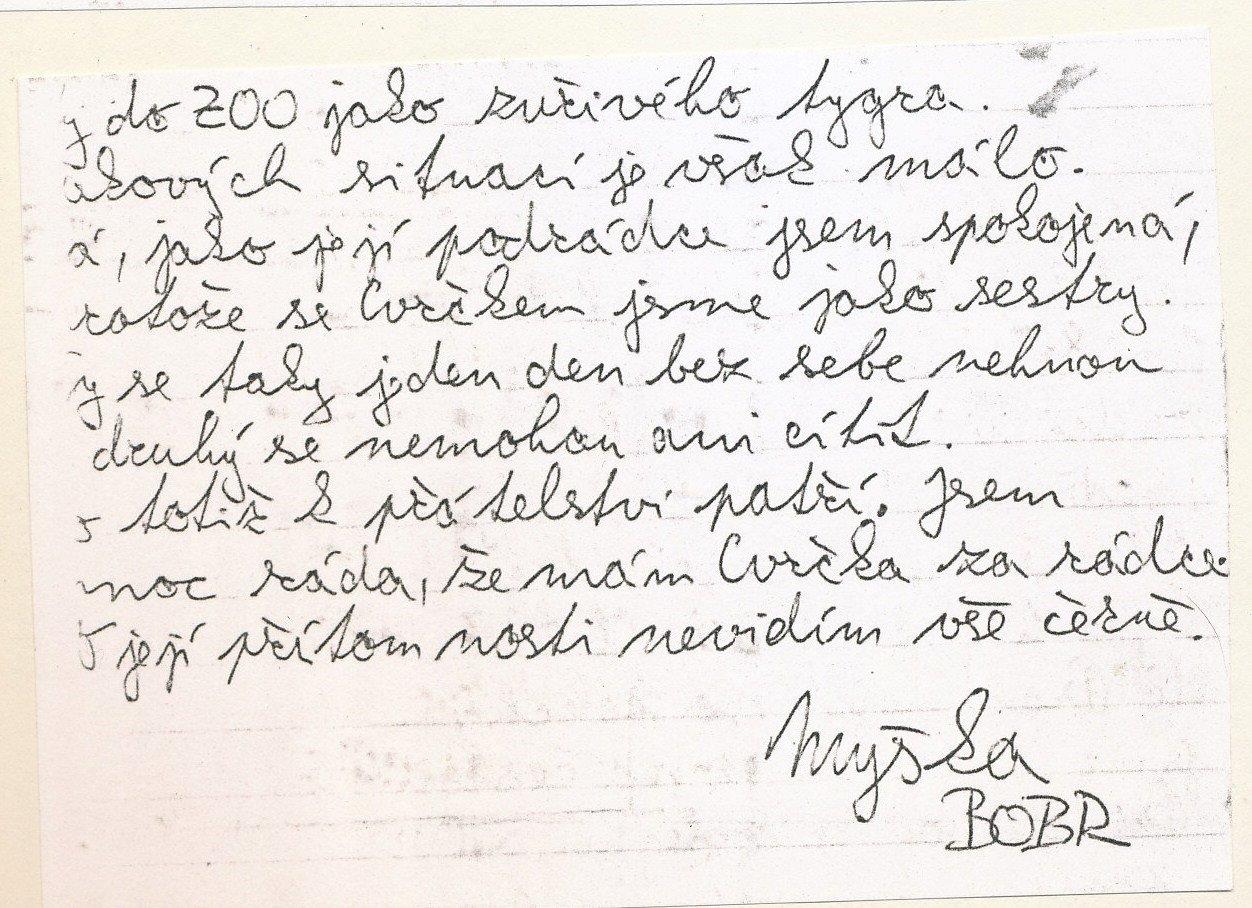 y do ZOO jako zuřivého tygra.
akových situací je však málo.
á, jako její podrádce jsem spokojená,
rotože se Cvrčkem jsme jako sestry.
y se taky jeden den bez sebe nehnou
druhý se nemohou ani cítit.
o totiž k přátelství patří. Jsem
moc ráda, že mám Cvrčka za rádce
V její přítomnosti nevidím vše černě.
Myška
BOBR